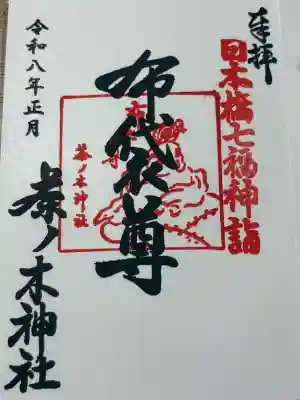 奉拝
日本橋七福神詣
布袋尊
茶ノ木神社
令和八年正月
茶ノ木神社